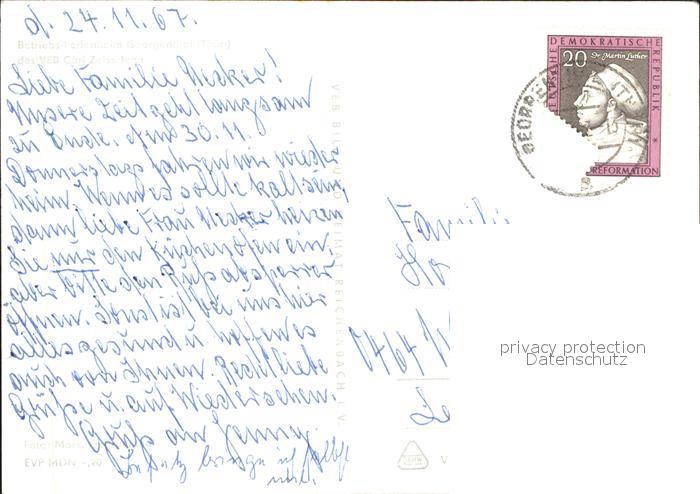 d. 24.11.67.
Betriebs-Ferienheim Georgenthal (Thür)
des VEB Carl Zeiss Jena
Liebe Familie Necker!
Unsere Zeit geht langsam
zu Ende. Am 30.11.
Donnerstag fahren wir wieder
heim. Wenn es sollte kalt sein,
dann liebe Frau Necker heizen
Sie nur den Küchenofen ein,
aber bitte den Rußabsperrer
öffnen. Sonst ist bei uns hier
alles gesund u. hoffen es
auch von Ihnen. Recht liebe
Grüße u. auf Wiedersehen.
Gruß an Jenny.
bringe ich selbst
mit.
EVP MDN -,20
VEB BILD UND HEIMAT REICHENBACH I. V.
DEMOKRATISCHE
REPUBLIK
20 Dr. Martin Luther
REFORMATION
Famili
Ho
privacy protection
Datenschutz
V